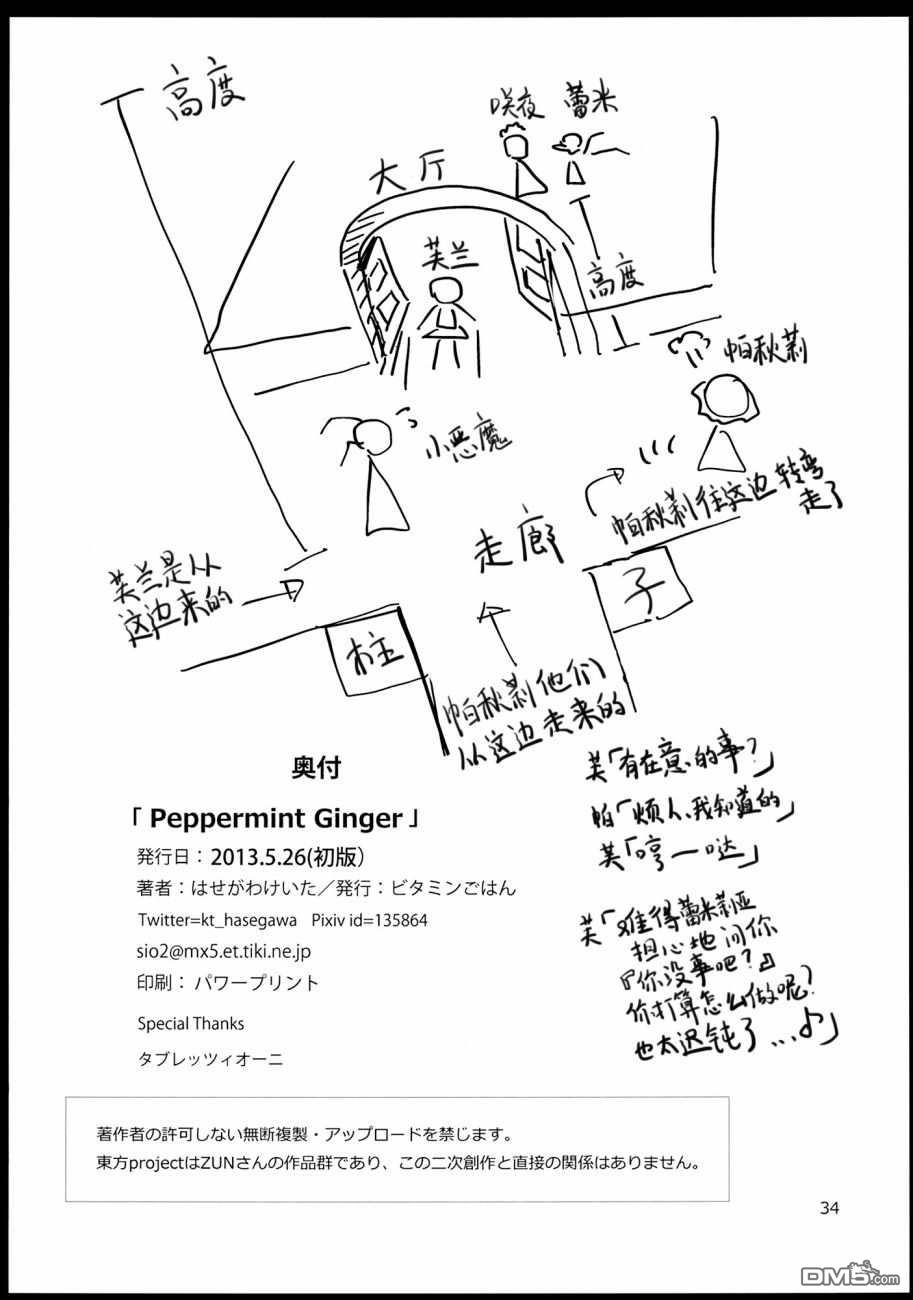 高度
咲夜 蕾米
大厅
芙兰
高度
帕秋莉
小恶魔
帕秋莉往这边转弯
走了
走廊
芙兰是从
这边来的
柱
子
帕秋莉他们
从这边走来的
奥付
「 Peppermint Ginger 」
発行日： 2013.5.26(初版）
著者：はせがわけいた／発行：ビタミンごはん
Twitter=kt_hasegawa Pixiv id=135864
sio2@mx5.et.tiki.ne.jp
印刷： パワープリント
Special Thanks
タブレッツィオーニ
芙「有在意的事？」
帕「烦人、我知道的」
芙「哼一哒」
芙「难得蕾米莉亚
担心地问你
『你没事吧？』
你打算怎么做呢？
也太迟钝了...♪」
著作者の許可しない無断複製・アップロードを禁じます。
東方projectはZUNさんの作品群であり、この二次創作と直接の関係はありません。
34
DM5.com